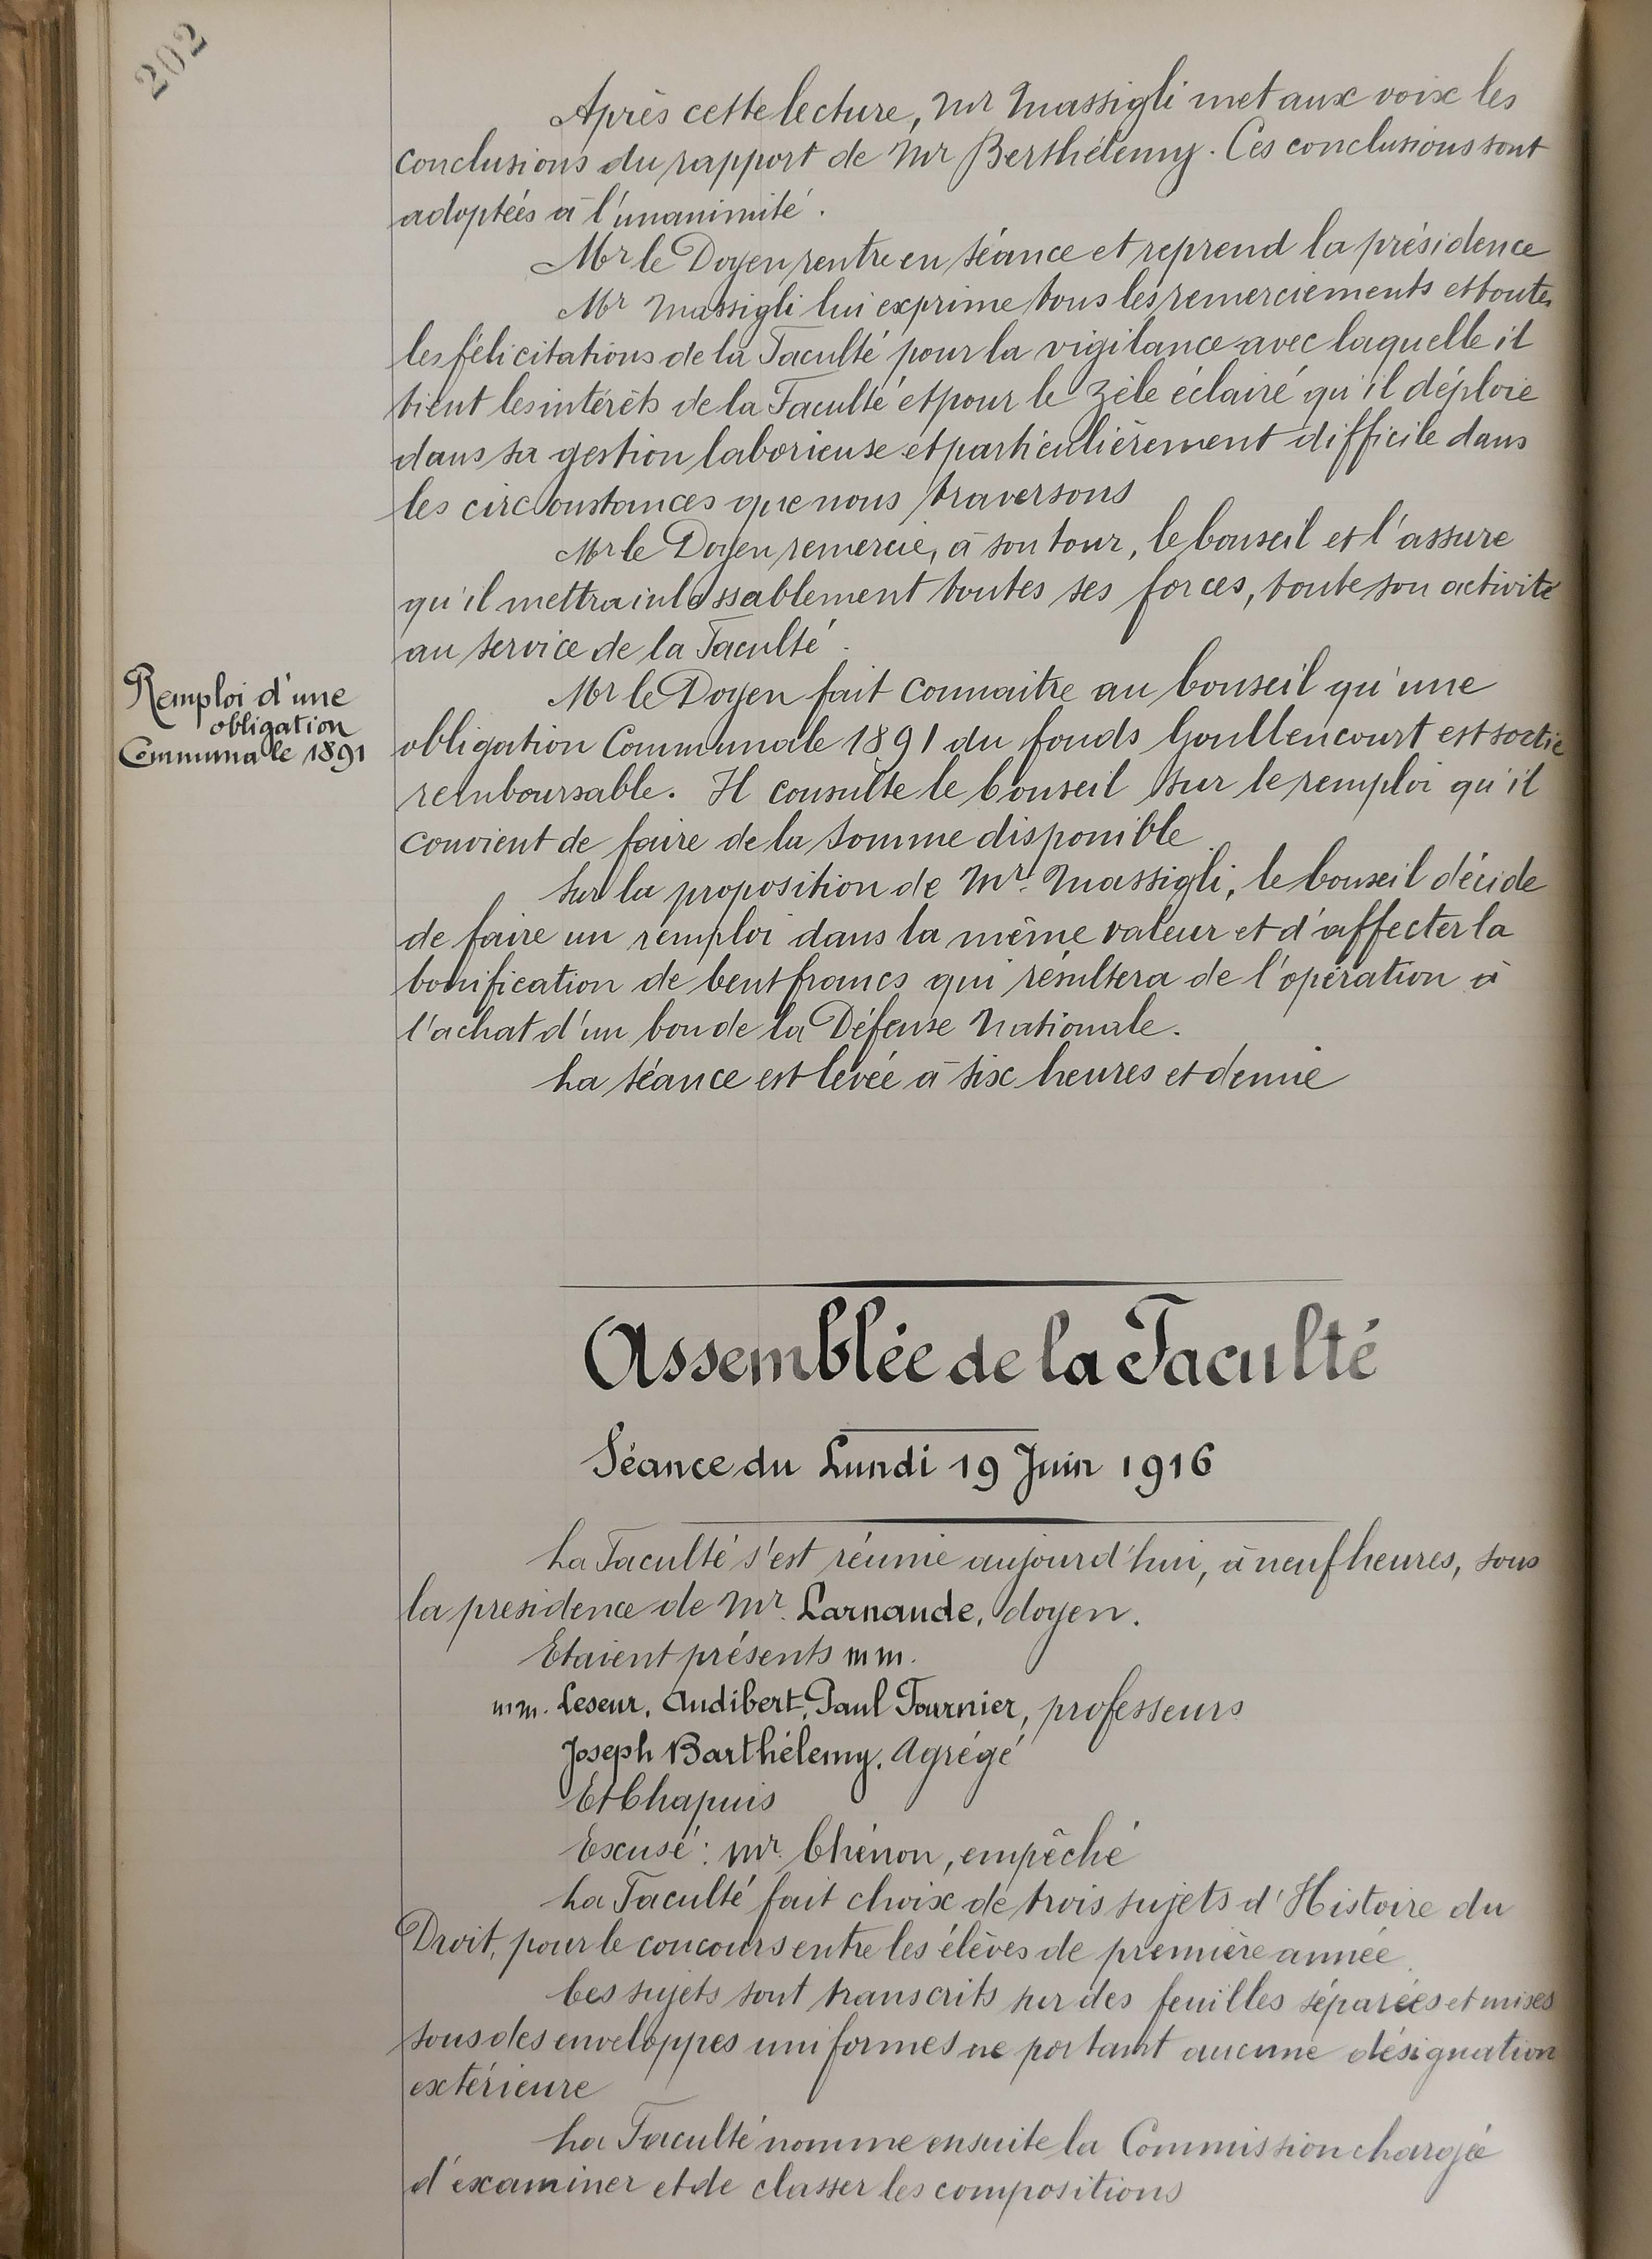 202
Après cette lecture, Mr Massigli met aux voix les
conclusions du rapport de Mr Berthélemy. Ces conclusions sont
adoptées à l'unanimité.
Mr le Doyen rentre en séance et reprend la présidence
Mr Massigli lui exprime tous les remerciements et toutes
les félicitations de la Faculté pour la vigilance avec laquelle il
tient les intérêts de la Faculté et pour le zèle éclairé qu'il déploie
dans sa gestion laborieuse et particulièrement difficile dans
les circonstances que nous traversons
Mr le Doyen remercie, à son tour, le Conseil et l'assure
qu'il mettra inlassablement toutes ses forces, toute son activité
au service de la Faculté.
Remploi d'une
obligation
Communale 1891
Mr le Doyen fait connaitre au Conseil qu'une
obligation Communale 1891 du fonds Goullencourt est sortie
remboursable. Il consulte le Conseil sur le remploi qu'il
convient de faire de la somme disponible.
Sur la proposition de Mr. Massigli, le Conseil décide
de faire un remploi dans la même valeur et d'affecter la
bonification de Cent francs qui résultera de l'opération à
l'achat d'un bon de la Défense Nationale.
La séance est levée à six heures et demie
Assemblée de la Faculté
Séance du Lundi 19 Juin 1916
La Faculté s'est réunie aujourd'hui, à neuf heures, sous
la présidence de Mr. Larnaude, doyen.
Etaient présents MM.
MM. Leseur, Audibert, Paul Fournier, professeurs
Joseph Barthélemy, Agrégé
Et Chapuis
Excusé : Mr. Chénon, empêché
La Faculté fait choix de trois sujets d'Histoire du
Droit, pour le concours entre les élèves de première année.
Ces sujets sont transcrits sur des feuilles séparées et mises
sous des enveloppes uniformes ne portant aucune désignation
extérieure
La Faculté nomme ensuite la Commission chargée
d'examiner et de classer les compositions